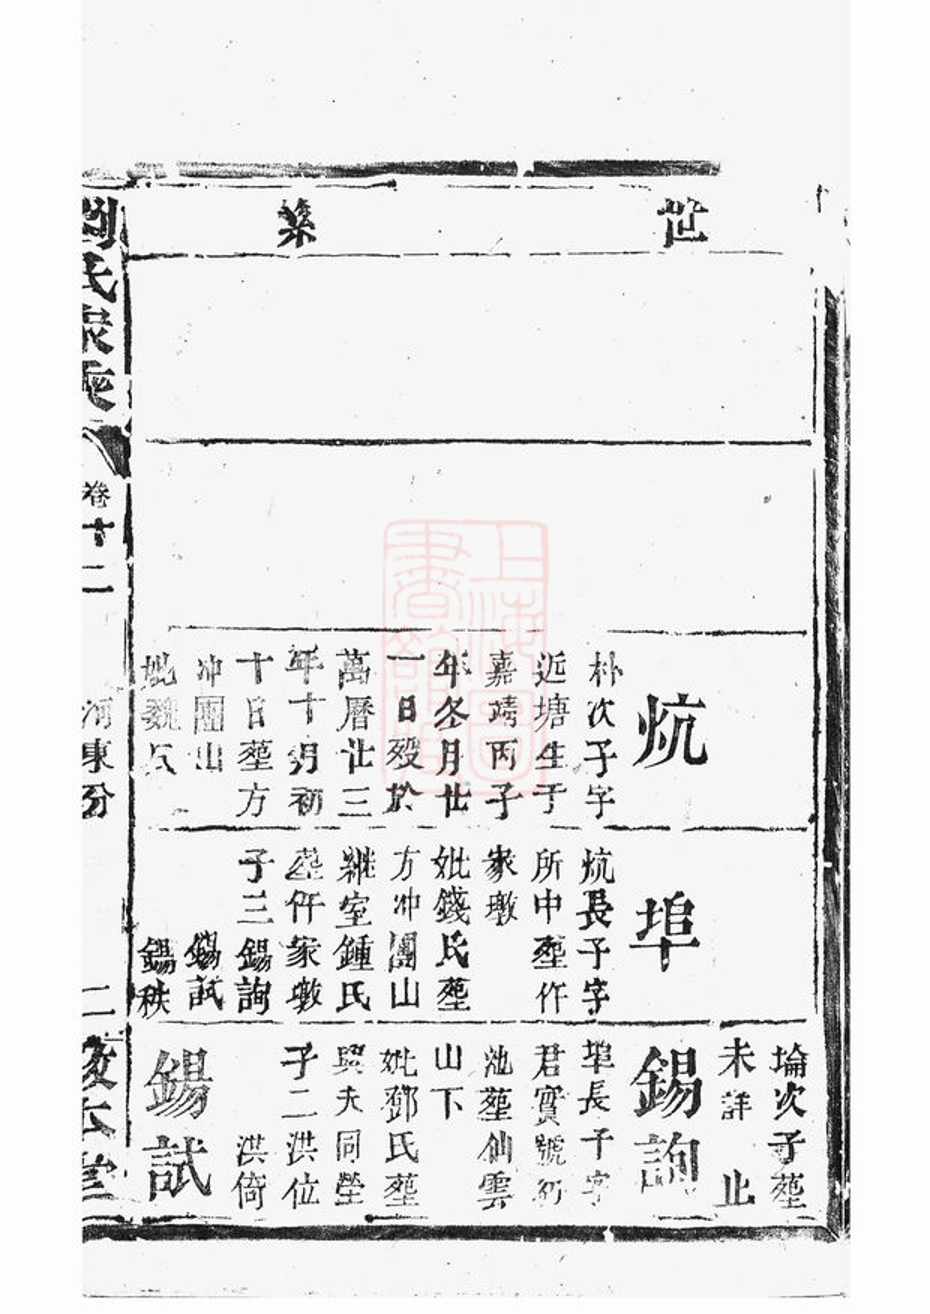 世
系
炕
朴次子字
近塘生于
嘉靖丙子
年冬月廿
一日殁於
萬曆廿三
年十月初
十日塟方
冲團山
妣魏氏
埠
炕長子字
所中塟仵
家墩
妣錢氏塟
方冲團山
繼室鍾氏
塟仵家墩
子三錫詢
錫試
錫秩
埨次子塟
未詳 止
錫詢
埠長子字
君實號
池塟仙雲
山下
妣鄧氏塟
與夫同塋
子二洪位
洪倚
錫試
劉氏家乘
卷十二
河東分
二
上海圖書館藏